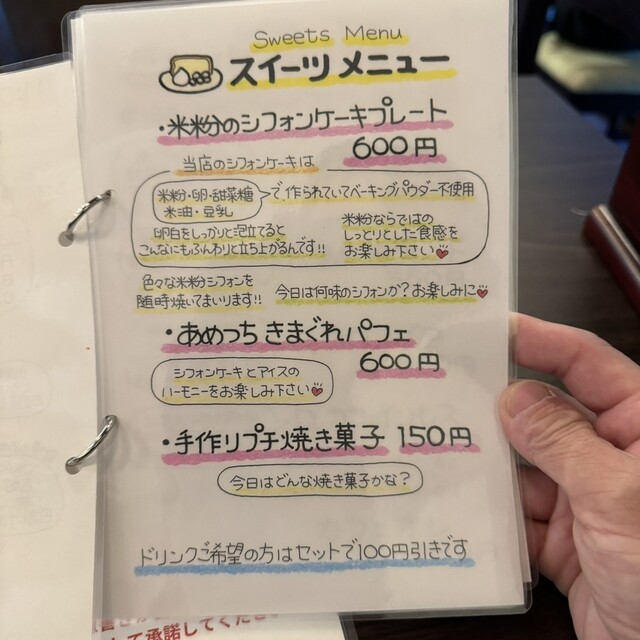 Sweets Menu
スイーツメニュー
・米粉のシフォンケーキプレート
600円
当店のシフォンケーキは
米粉・卵・甜菜糖
米油・豆乳
で、作られていてベーキングパウダー不使用
卵白をしっかりと泡立てると
こんなにもふんわりと立ち上がるんです!!
米粉ならではの
しっとりとした食感を
お楽しみ下さい♥
色々な米粉シフォンを
随時焼いてまいります!!
今日は何味のシフォンか?お楽しみに♥
・あめっち きまぐれパフェ
600円
シフォンケーキとアイスの
ハーモニーをお楽しみ下さい♥
・手作りプチ焼き菓子 150円
今日はどんな焼き菓子かな?
ドリンクご希望の方はセットで100円引きです
して承諾してくださ